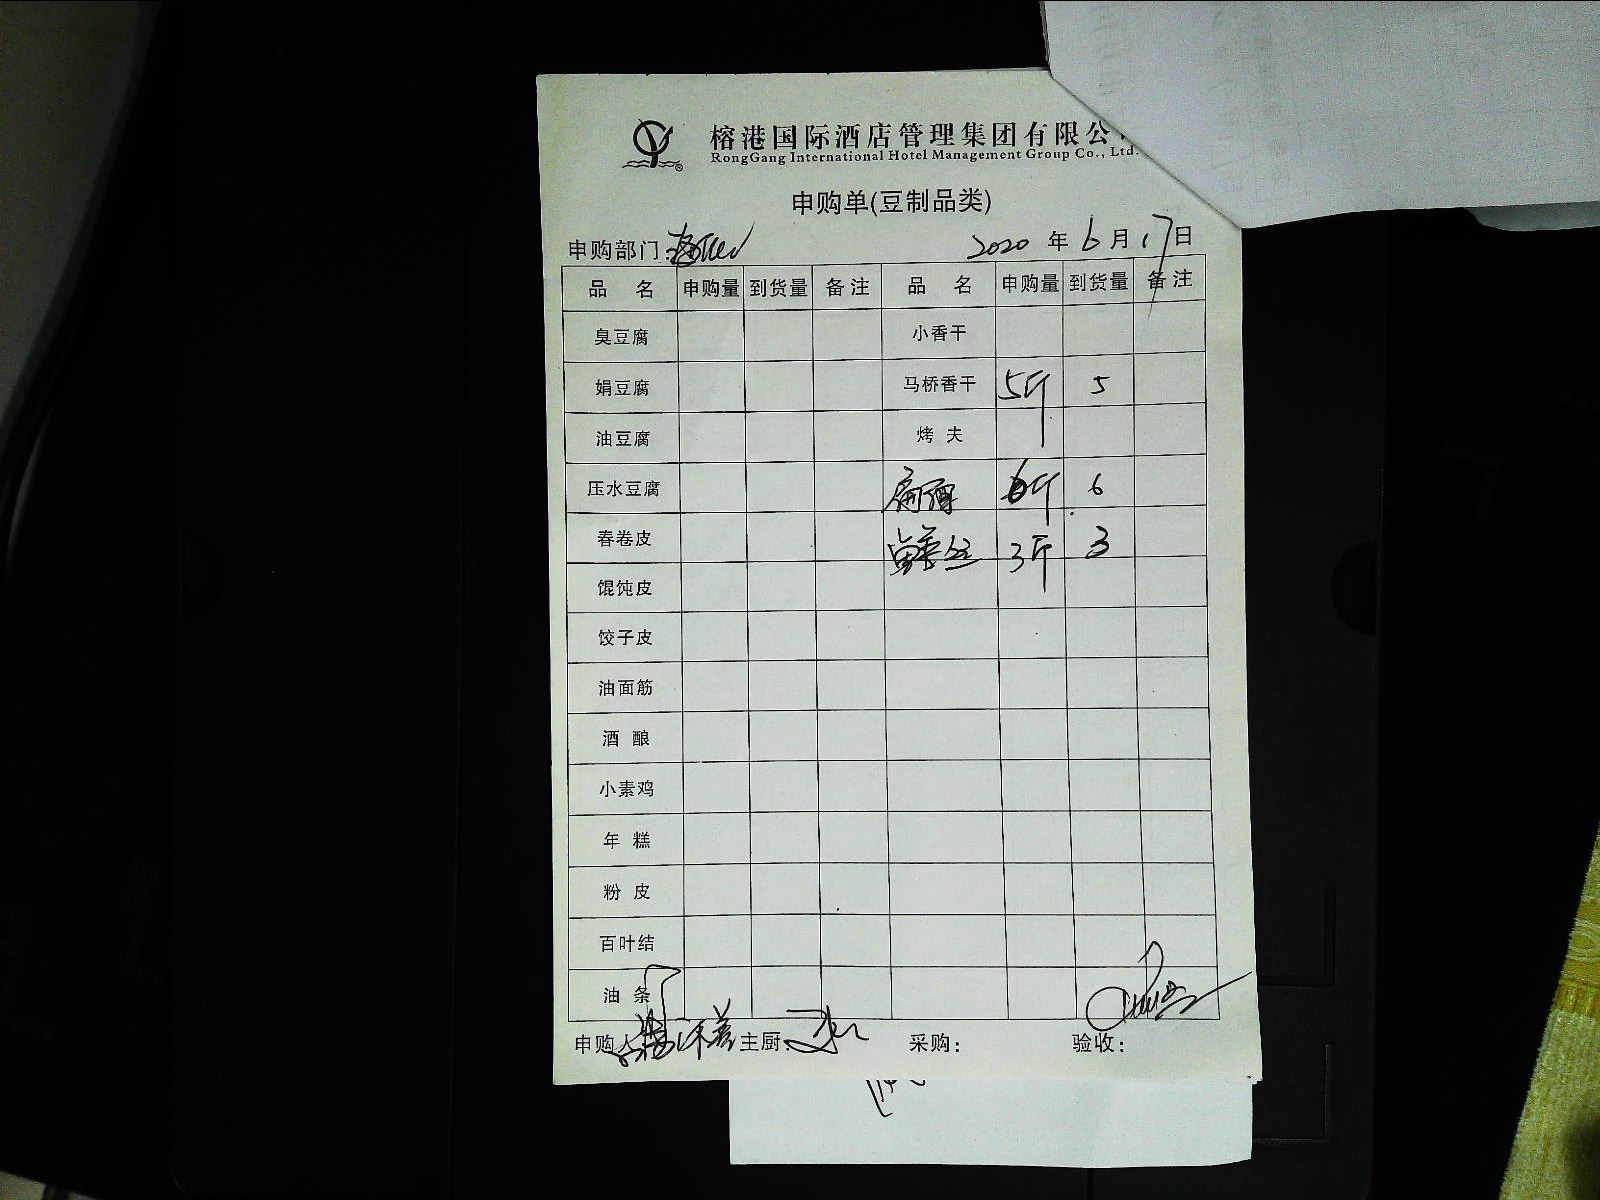 榕港国际酒店管理集团有限公
RongGang International Hotel Management Group Co., Ltd.
申购单(豆制品类)
申购部门: 2020 年 6 月 17 日
品 名 申购量 到货量 备注 品 名 申购量 到货量 备注
臭豆腐 小香干
娟豆腐 马桥香干 5斤 5
油豆腐 烤 夫
压水豆腐 6斤 6
春卷皮 3斤 3
馄饨皮
饺子皮
油面筋
酒 酿
小素鸡
年 糕
粉 皮
百叶结
油 条
申购人 主厨: 采购: 验收: